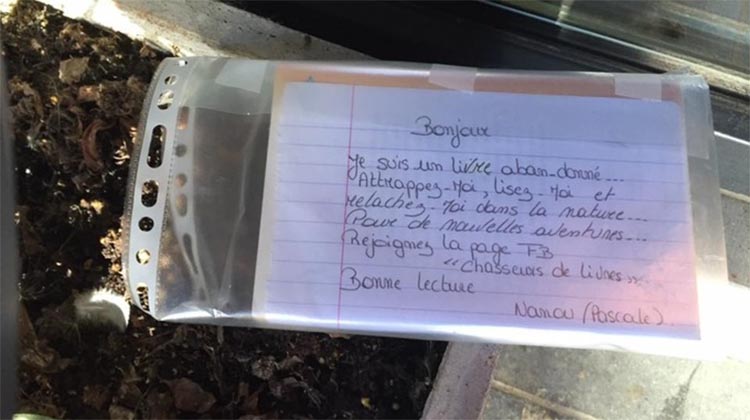 Bonjour
Je suis un livre aban-donné...
Attrappez-Moi, lisez-Moi et
relachez-Moi dans la nature...
Pour de nouvelles aventures...
Rejoignez la page FB
"chasseurs de livres".
Bonne lecture
Nanou (Pascale).